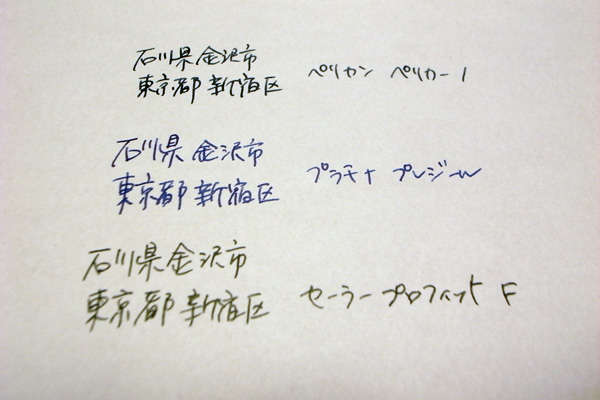 石川県金沢市
東京都新宿区 ペリカン ペリカーノ
石川県金沢市
東京都新宿区 プラチナ プレジール
石川県金沢市
東京都新宿区 セーラープロフィット F